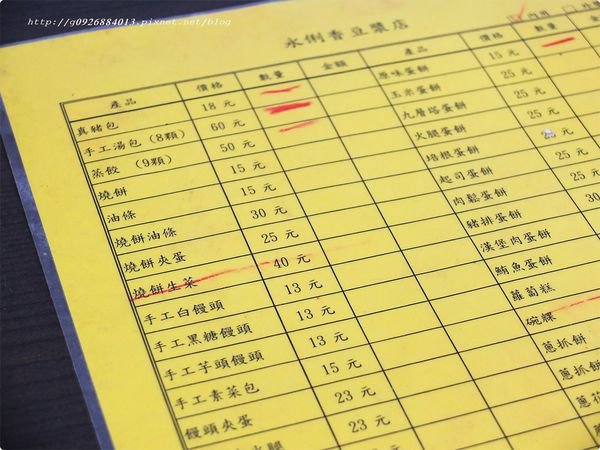 http://g0926884013.pixnet.net/blog
永俐香豆漿店
內用
產品 價格 數量 金額
真豬包 18 元
手工湯包 (8顆) 60 元
蒸餃 (9顆) 50 元
燒餅 15 元
油條 15 元
燒餅油條 30 元
燒餅夾蛋 25 元
燒餅生菜 40 元
手工白饅頭 13 元
手工黑糖饅頭 13 元
手工芋頭饅頭 13 元
手工素菜包 15 元
饅頭夾蛋 23 元
火腿 23 元
產品 價格 數量
原味蛋餅 15 元
玉米蛋餅 25 元
九層塔蛋餅 25 元
火腿蛋餅 25 元
培根蛋餅 25 元
起司蛋餅 25 元
肉鬆蛋餅 25
豬排蛋餅 30
漢堡肉蛋餅
鮪魚蛋餅
蘿蔔糕
碗粿
蔥抓餅
蔥抓餅
蔥花